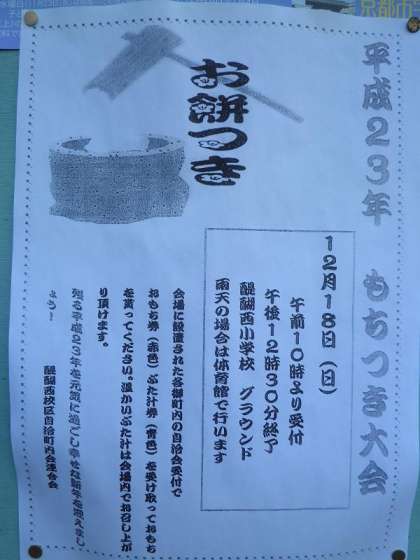 平成23年 もちつき大会
お餅つき
12月18日（日）
午前10時より受付
午後12時30分終了
醍醐西小学校 グラウンド
雨天の場合は体育館で行います
会場に設置された各御町内の自治会受付で
おもち券（赤色）ぶた汁券（青色）を受け取っておもち
を貰ってください。温かいぶた汁は会場内でお召し上が
り頂けます。
残る平成23年を元気に過ごし幸せな新年を迎えまし
ょう！
醍醐西校区自治町内会連合会
京都市